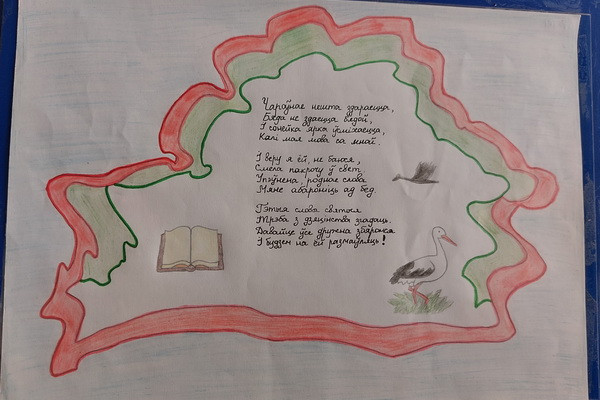 Чароўнае нешта здараецца,
Бяда не здаецца бядой,
І сонейка ярка ўсміхаецца,
Калі мая мова са мной.
І веру я ёй, не баюся,
Смела пакрочу ў свет.
Упэўнена, роднае слова
Мяне абароніць ад бед.
Гэтыя словы святыя
Трэба з дзяцінства згадаць.
Давайце ўсе дружна збяромся
І будзем на ёй размаўляць!